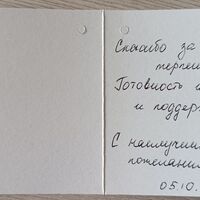 Спасибо за
терпе
Готовность и
и поддер
С наилучши
пожелани
05.10.